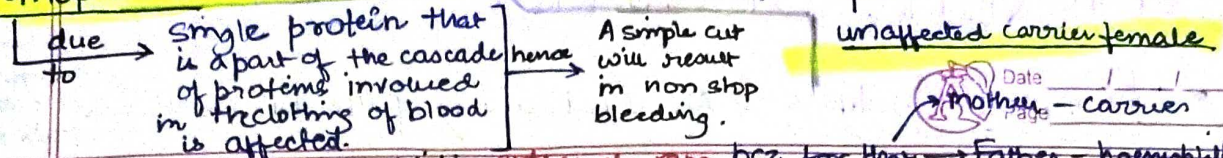 due
to
single protein that
is a part of the cascade
of proteins involved
in the clothing of blood
is affected.
hence
A simple cut
will result
in non stop
bleeding.
unaffected carrier female
Date / /
Page
mother - carrier
Father - haemophil